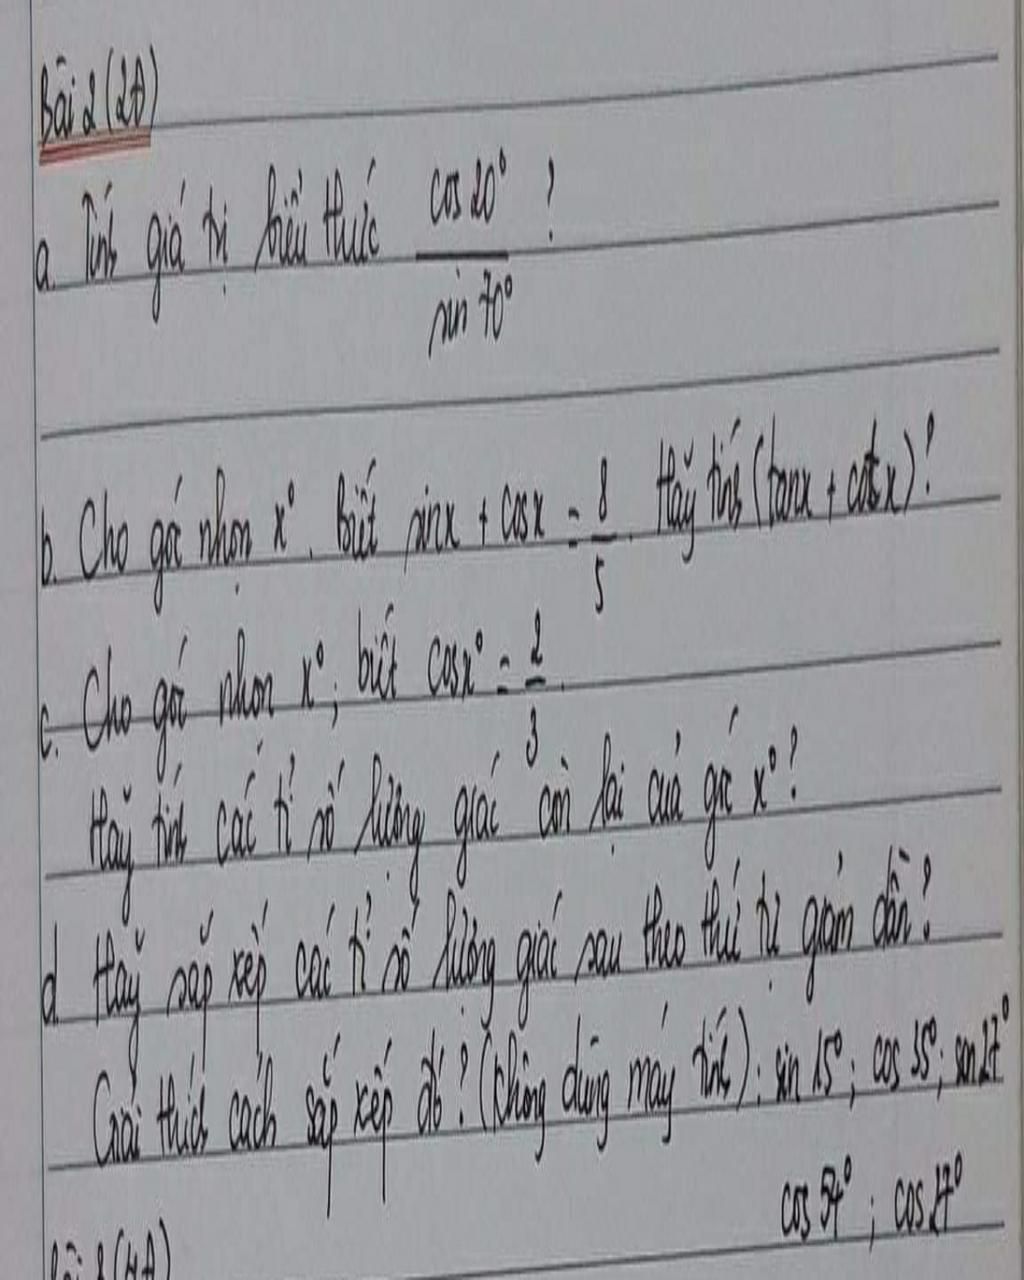 Bài 2 (2Đ)
a. Tính giá trị biểu thức cos 20° / sin 70° ?
b. Cho góc nhọn x°. Biết sinx + cosx = 8/5. Hãy tính (tanx + cotx)?
c. Cho góc nhọn x°; biết cosx° = 2/3.
Hãy tính các tỉ số lượng giác còn lại của góc x°?
d. Hãy sắp xếp các tỉ số lượng giác sau theo thứ tự giảm dần?
Giải thích cách sắp xếp đó? (không dùng máy tính): sin 15°; cos 35°; sin 27°
cos 54° ; cos 27°